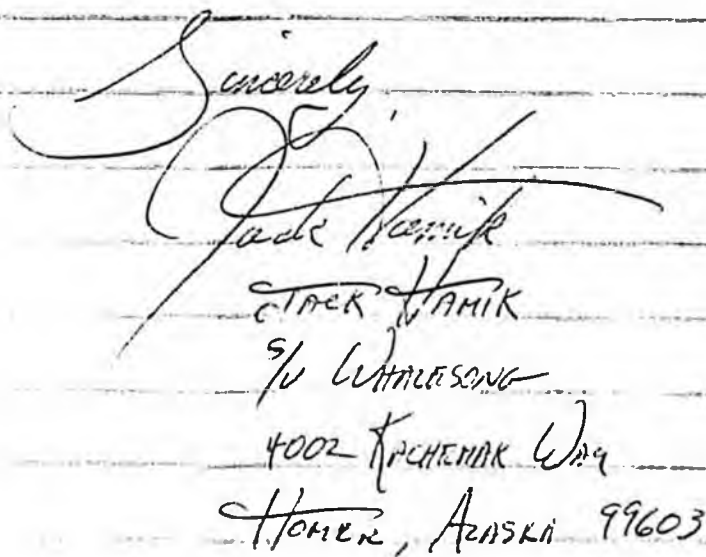 Sincerely,
Jack Hamik
JACK HAMIK
S/V WHALESONG
4002 KACHEMAK WAY
HOMER, ALASKA 99603